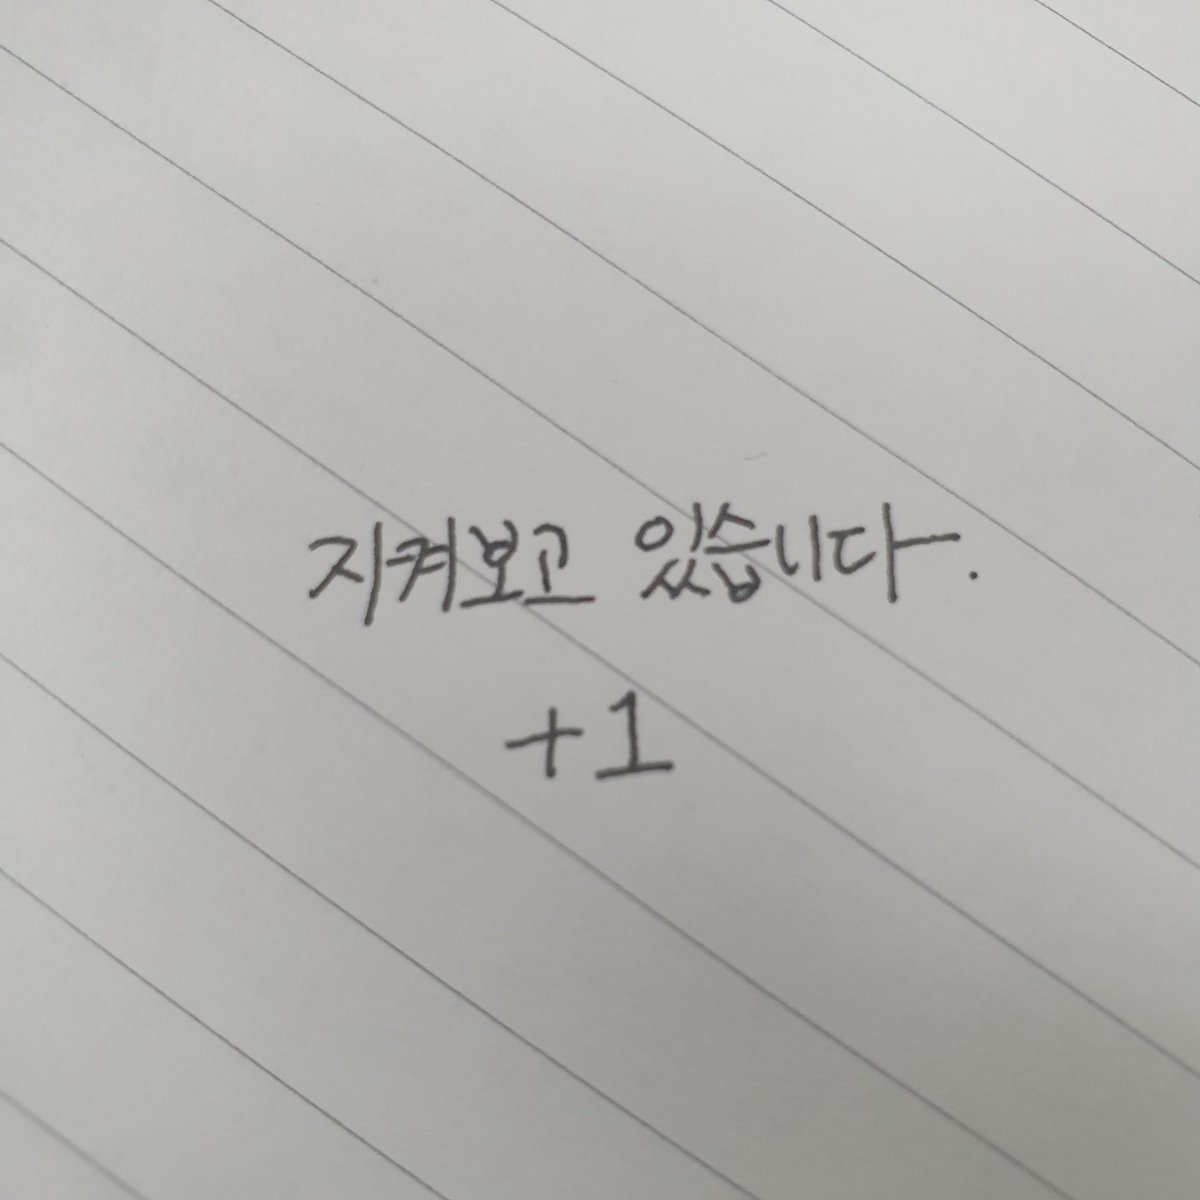 지켜보고 있습니다.
+1